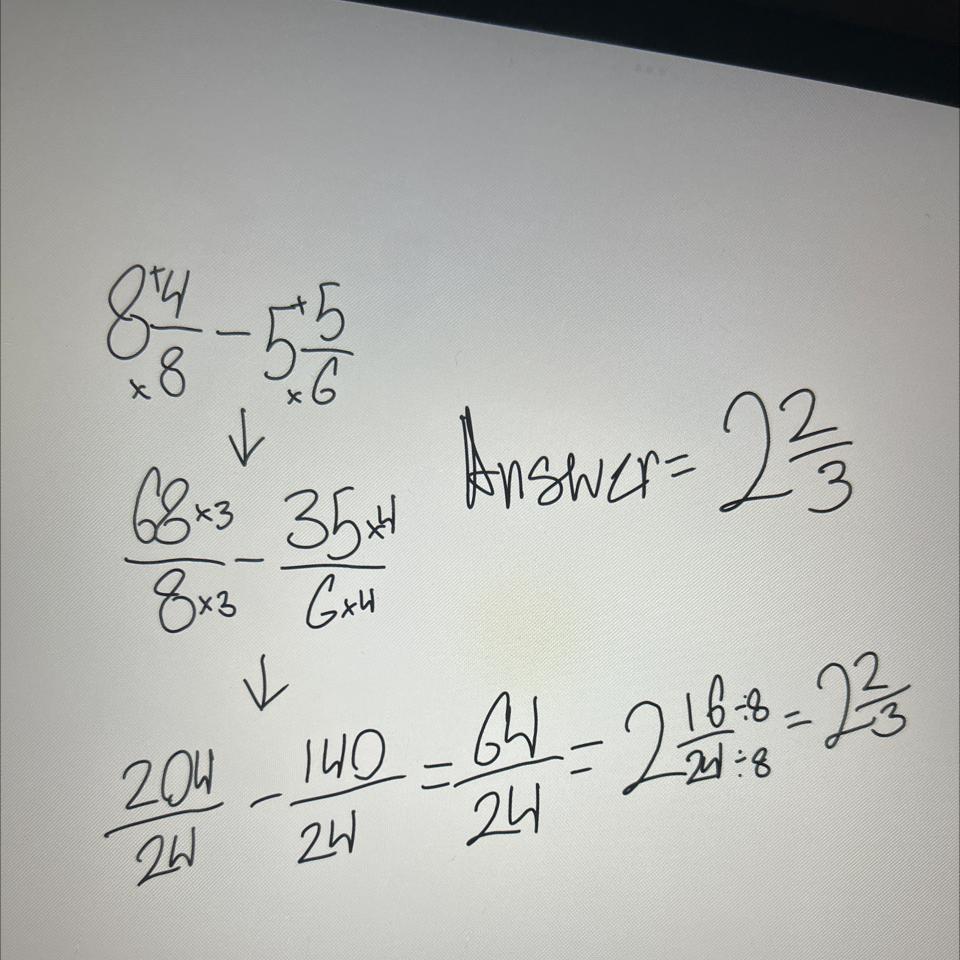 8 +4/×8 − 5 +5/×6
↓
68×3/8×3 − 35×4/6×4
Answer = 2 2/3
↓
204/24 − 140/24 = 64/24 = 2 16÷8/24÷8 = 2 2/3